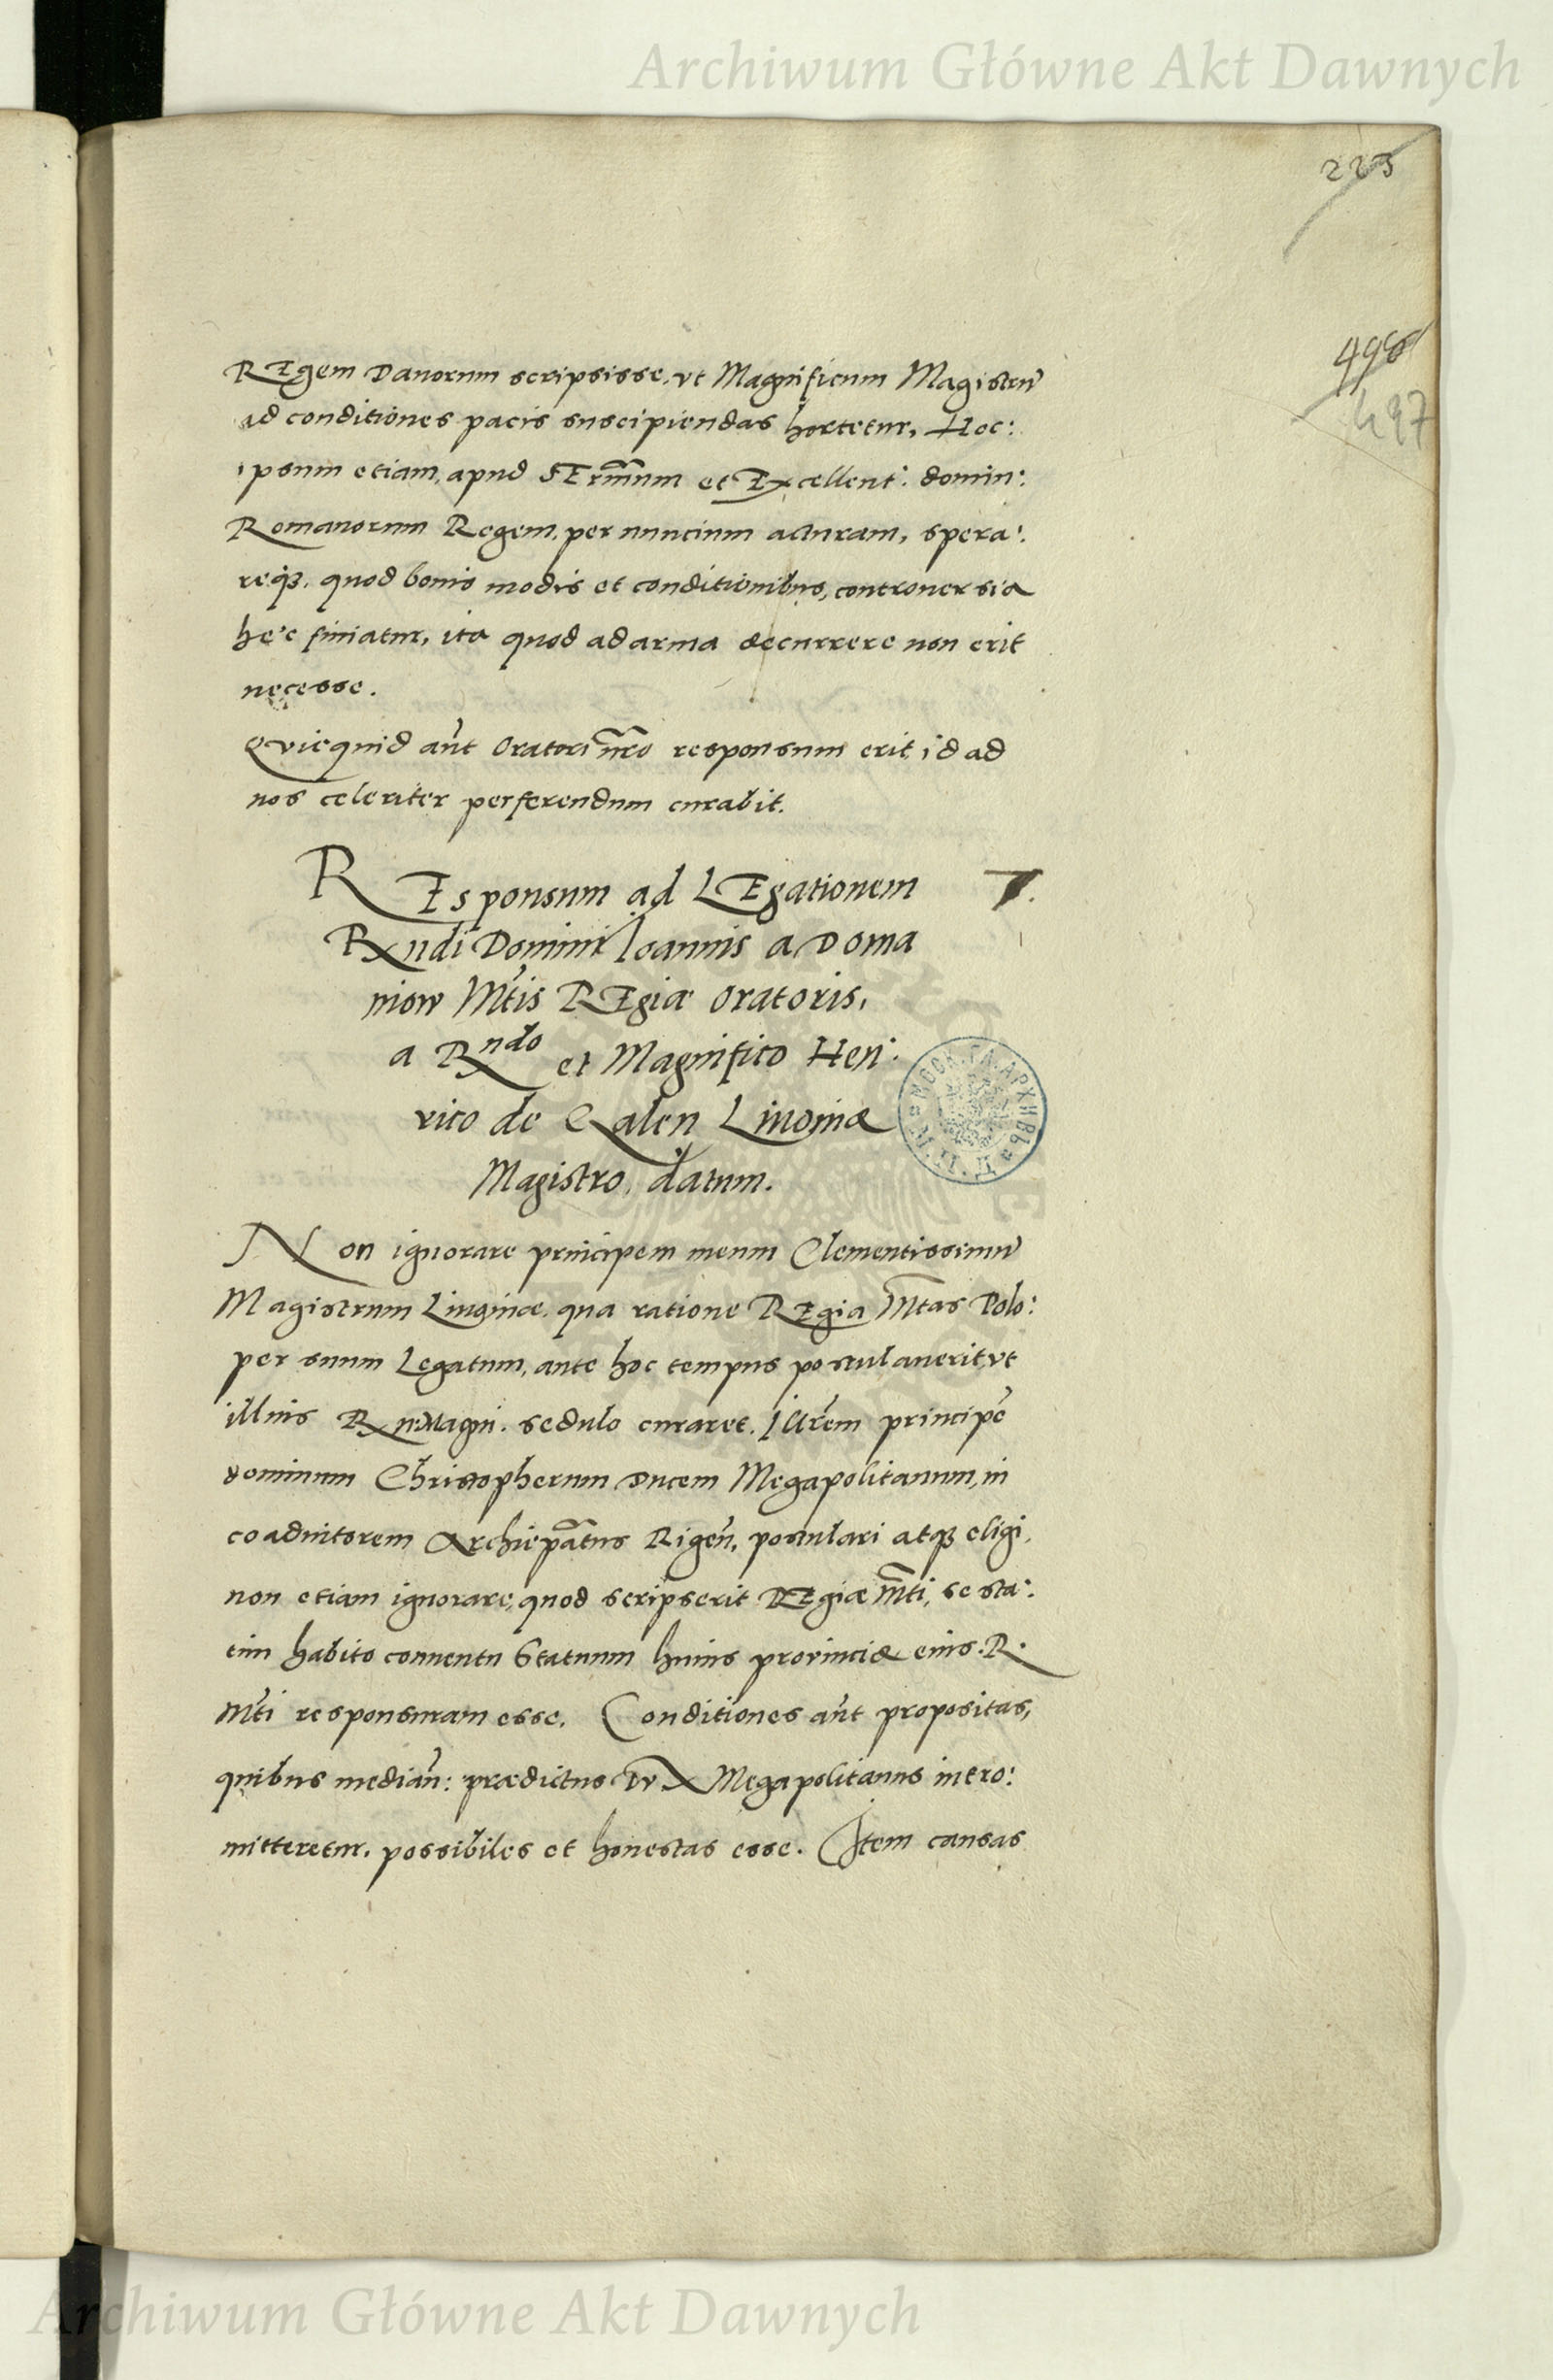 Archiwum Główne Akt Dawnych
223
496
497
REgem Danorum scripsisse, vt Magnificum Magistrũ
ad conditiones pacis suscipiendas hortetur, Hoc:
ipsum etiam, apud SErm̃um et Excellent: domin:
Romanorum Regem, per nuncium acturam, spera:
req3, quod bonis modis et conditionibus, controuersia
hec finiatur, ita quod ad arma decurrere non erit
necesse.
Quicquid aũt Oratori ñro responsum erit, id ad
nos celeriter perferendum curabit.
REsponsum ad LEgationem
Rndi Domini Ioannis a Doma
niow Mtis REgiæ Oratoris,
a Rndo et Magnifico Hen:
rico de Galen Liuoniæ
Magistro, datum.
Non ignorare principem meum Clementissimũ
Magistrum Liuoniæ, qua ratione REgia Mtas Polo:
per suum Legatum, ante hoc tempus postulauerit, vt
illius Rn: Magni. sedulo curaret, Illrem principẽ
dominum Christopherum Ducem Megapolitanum, in
coadiutorem Archiep̃atus Rigeñ, postulari atq3 eligi,
non etiam ignorare, quod scripserit REgiæ Mti, se sta:
tim habito conuentu Statuum huius prouinciæ eius. R.
Mti responsuram esse. Conditiones aũt propositas,
quibus mediañ: prædictus Dux Megapolitanus intro:
mitteretur, possibiles et honestas esse. Item causas
МОСК. ГЛ. АРХИВЪ
Archiwum Główne Akt Dawnych